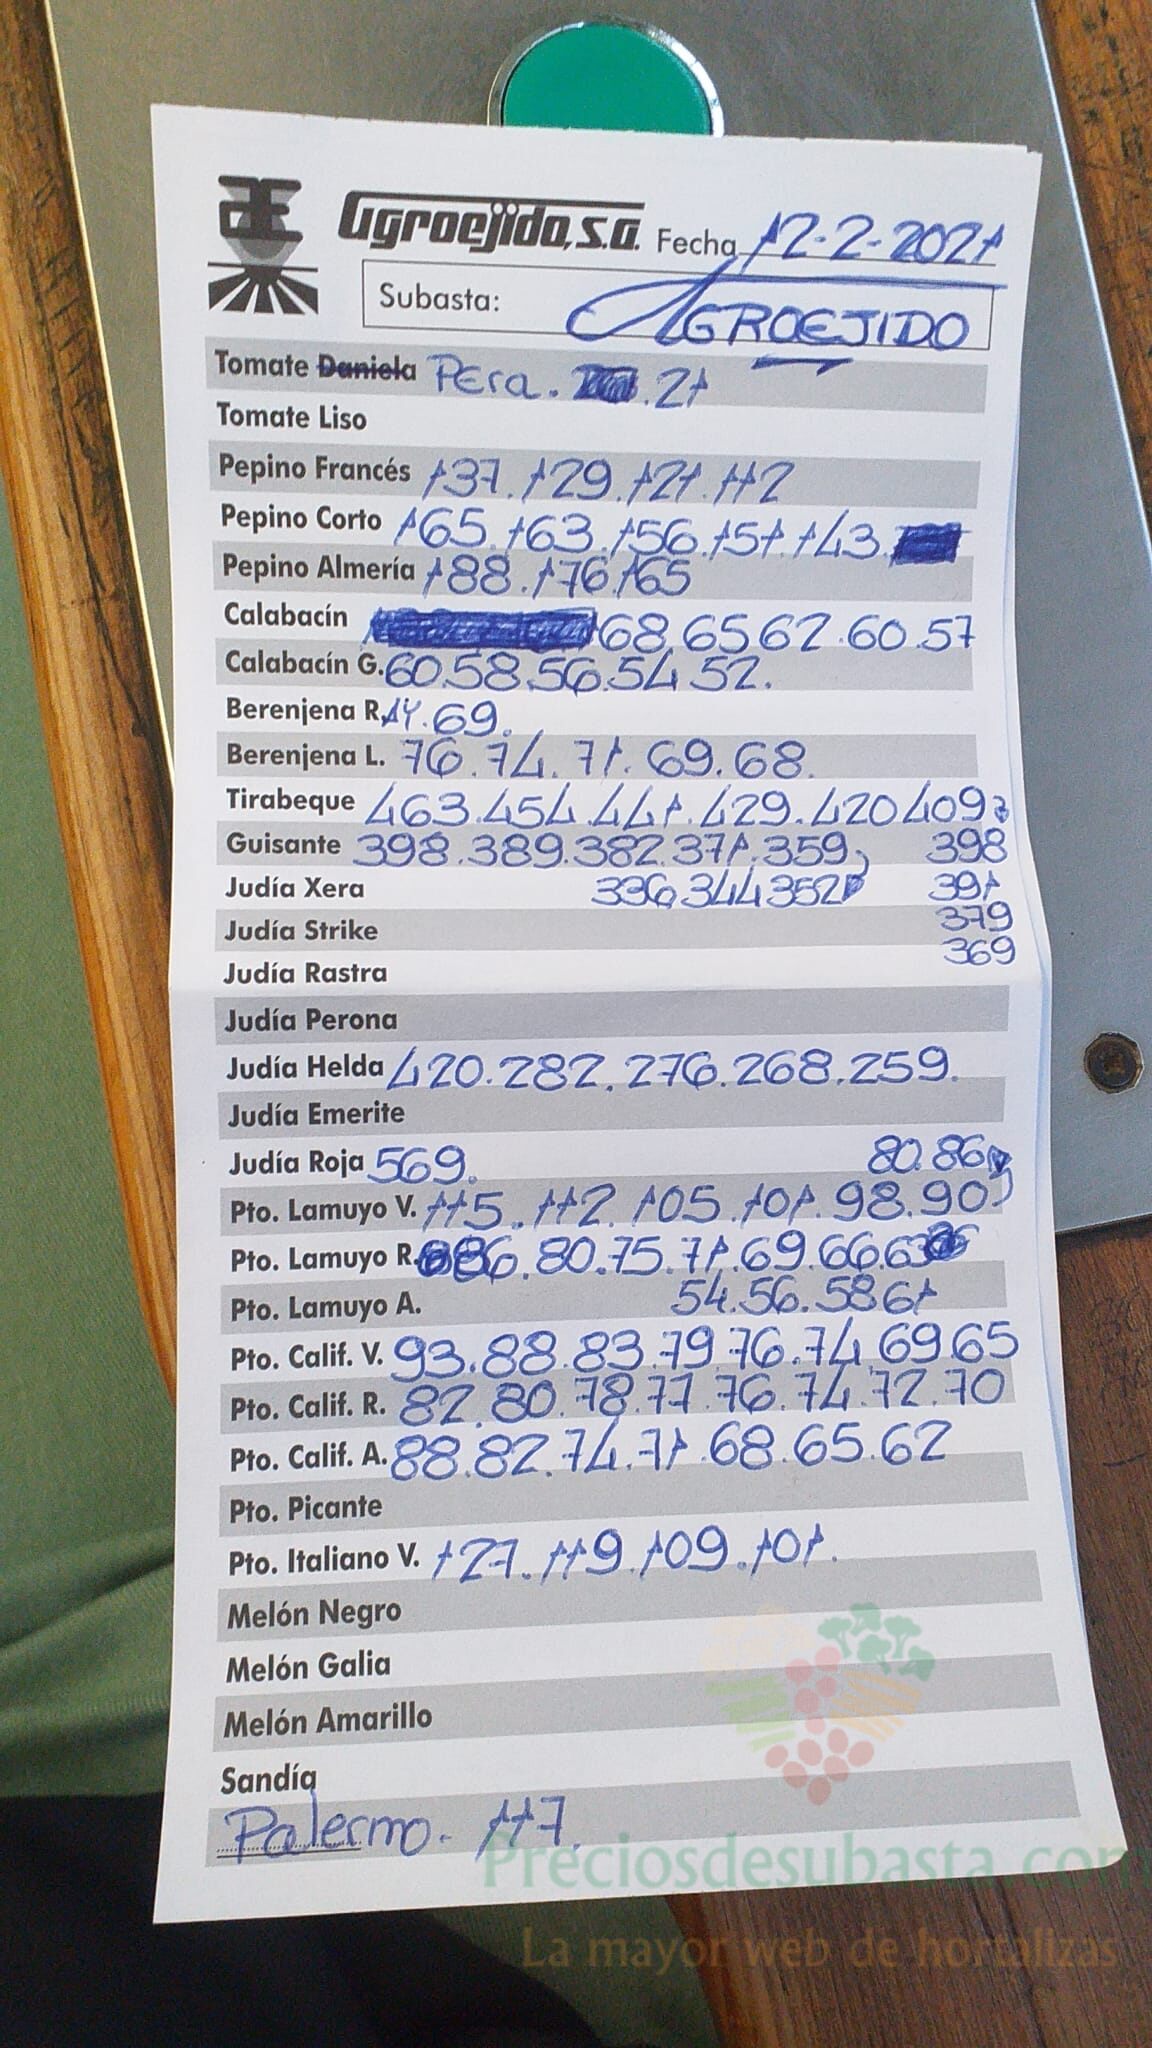 Agroejido, S.A. Fecha 12-2-2021
Subasta: AGROEJIDO
Tomate Daniela Pera. 21
Tomate Liso
Pepino Francés 137. 129. 121. 112
Pepino Corto 165. 163. 156. 151. 143.
Pepino Almería 188. 176. 165
Calabacín 68. 65 62. 60. 57
Calabacín G. 60. 58. 56. 54 52.
Berenjena R. 69.
Berenjena L. 76. 74. 71. 69. 68.
Tirabeque 463. 454. 441. 429. 420 409
Guisante 398. 389. 382. 371. 359 398
Judía Xera 336. 344 352 391
Judía Strike 379
369
Judía Rastra
Judía Perona
Judía Helda 420. 282. 276. 268. 259.
Judía Emerite
Judía Roja 569. 80. 86
Pto. Lamuyo V. 115. 112. 105. 101. 98. 90
Pto. Lamuyo R. 86. 80. 75. 71. 69. 66. 63
Pto. Lamuyo A. 54. 56. 58 61
Pto. Calif. V. 93. 88. 83. 79 76. 74 69 65
Pto. Calif. R. 82. 80. 78. 77. 76. 74. 72. 70
Pto. Calif. A. 88. 82. 74. 71. 68. 65. 62
Pto. Picante
Pto. Italiano V. 127. 119. 109. 101.
Melón Negro
Melón Galia
Melón Amarillo
Sandía
Palermo. 117.
Preciosdesubasta.com
La mayor web de hortalizas